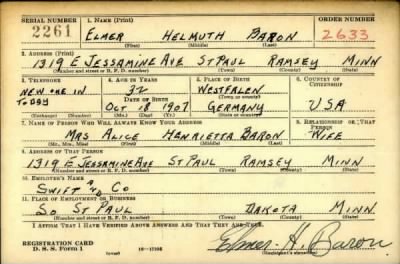 SERIAL NUMBER 1. NAME (Print) ORDER NUMBER
2261 ELMER HELMUTH BARON 2633
(First) (Middle) (Last)
2. ADDRESS (Print)
1319 E JESSAMINE AVE ST PAUL RAMSEY MINN
(Number and street or R. F. D. number) (Town) (County) (State)
3. TELEPHONE 4. AGE IN YEARS 5. PLACE OF BIRTH 6. COUNTRY OF CITIZENSHIP
NEW ONE IN 32 WESTFALEN
TODAY DATE OF BIRTH (Town or county)
OCT 18 1907 GERMANY USA
(Exchange) (Number) (Mo.) (Day) (Yr.) (State or country)
7. NAME OF PERSON WHO WILL ALWAYS KNOW YOUR ADDRESS 8. RELATIONSHIP OF THAT PERSON
MRS ALICE HENRIETTA BARON WIFE
(Mr., Mrs., Miss) (First) (Middle) (Last)
9. ADDRESS OF THAT PERSON
1319 E JESSAMINE AVE ST PAUL RAMSEY MINN
(Number and street or R. F. D. number) (Town) (County) (State)
10. EMPLOYER'S NAME
SWIFT AND CO
11. PLACE OF EMPLOYMENT OR BUSINESS
SO ST PAUL DAKOTA MINN
(Number and street or R. F. D. number) (Town) (County) (State)
I AFFIRM THAT I HAVE VERIFIED ABOVE ANSWERS AND THAT THEY ARE TRUE.
REGISTRATION CARD Elmer H. Baron
D. S. S. Form 1 (Registrant's signature)